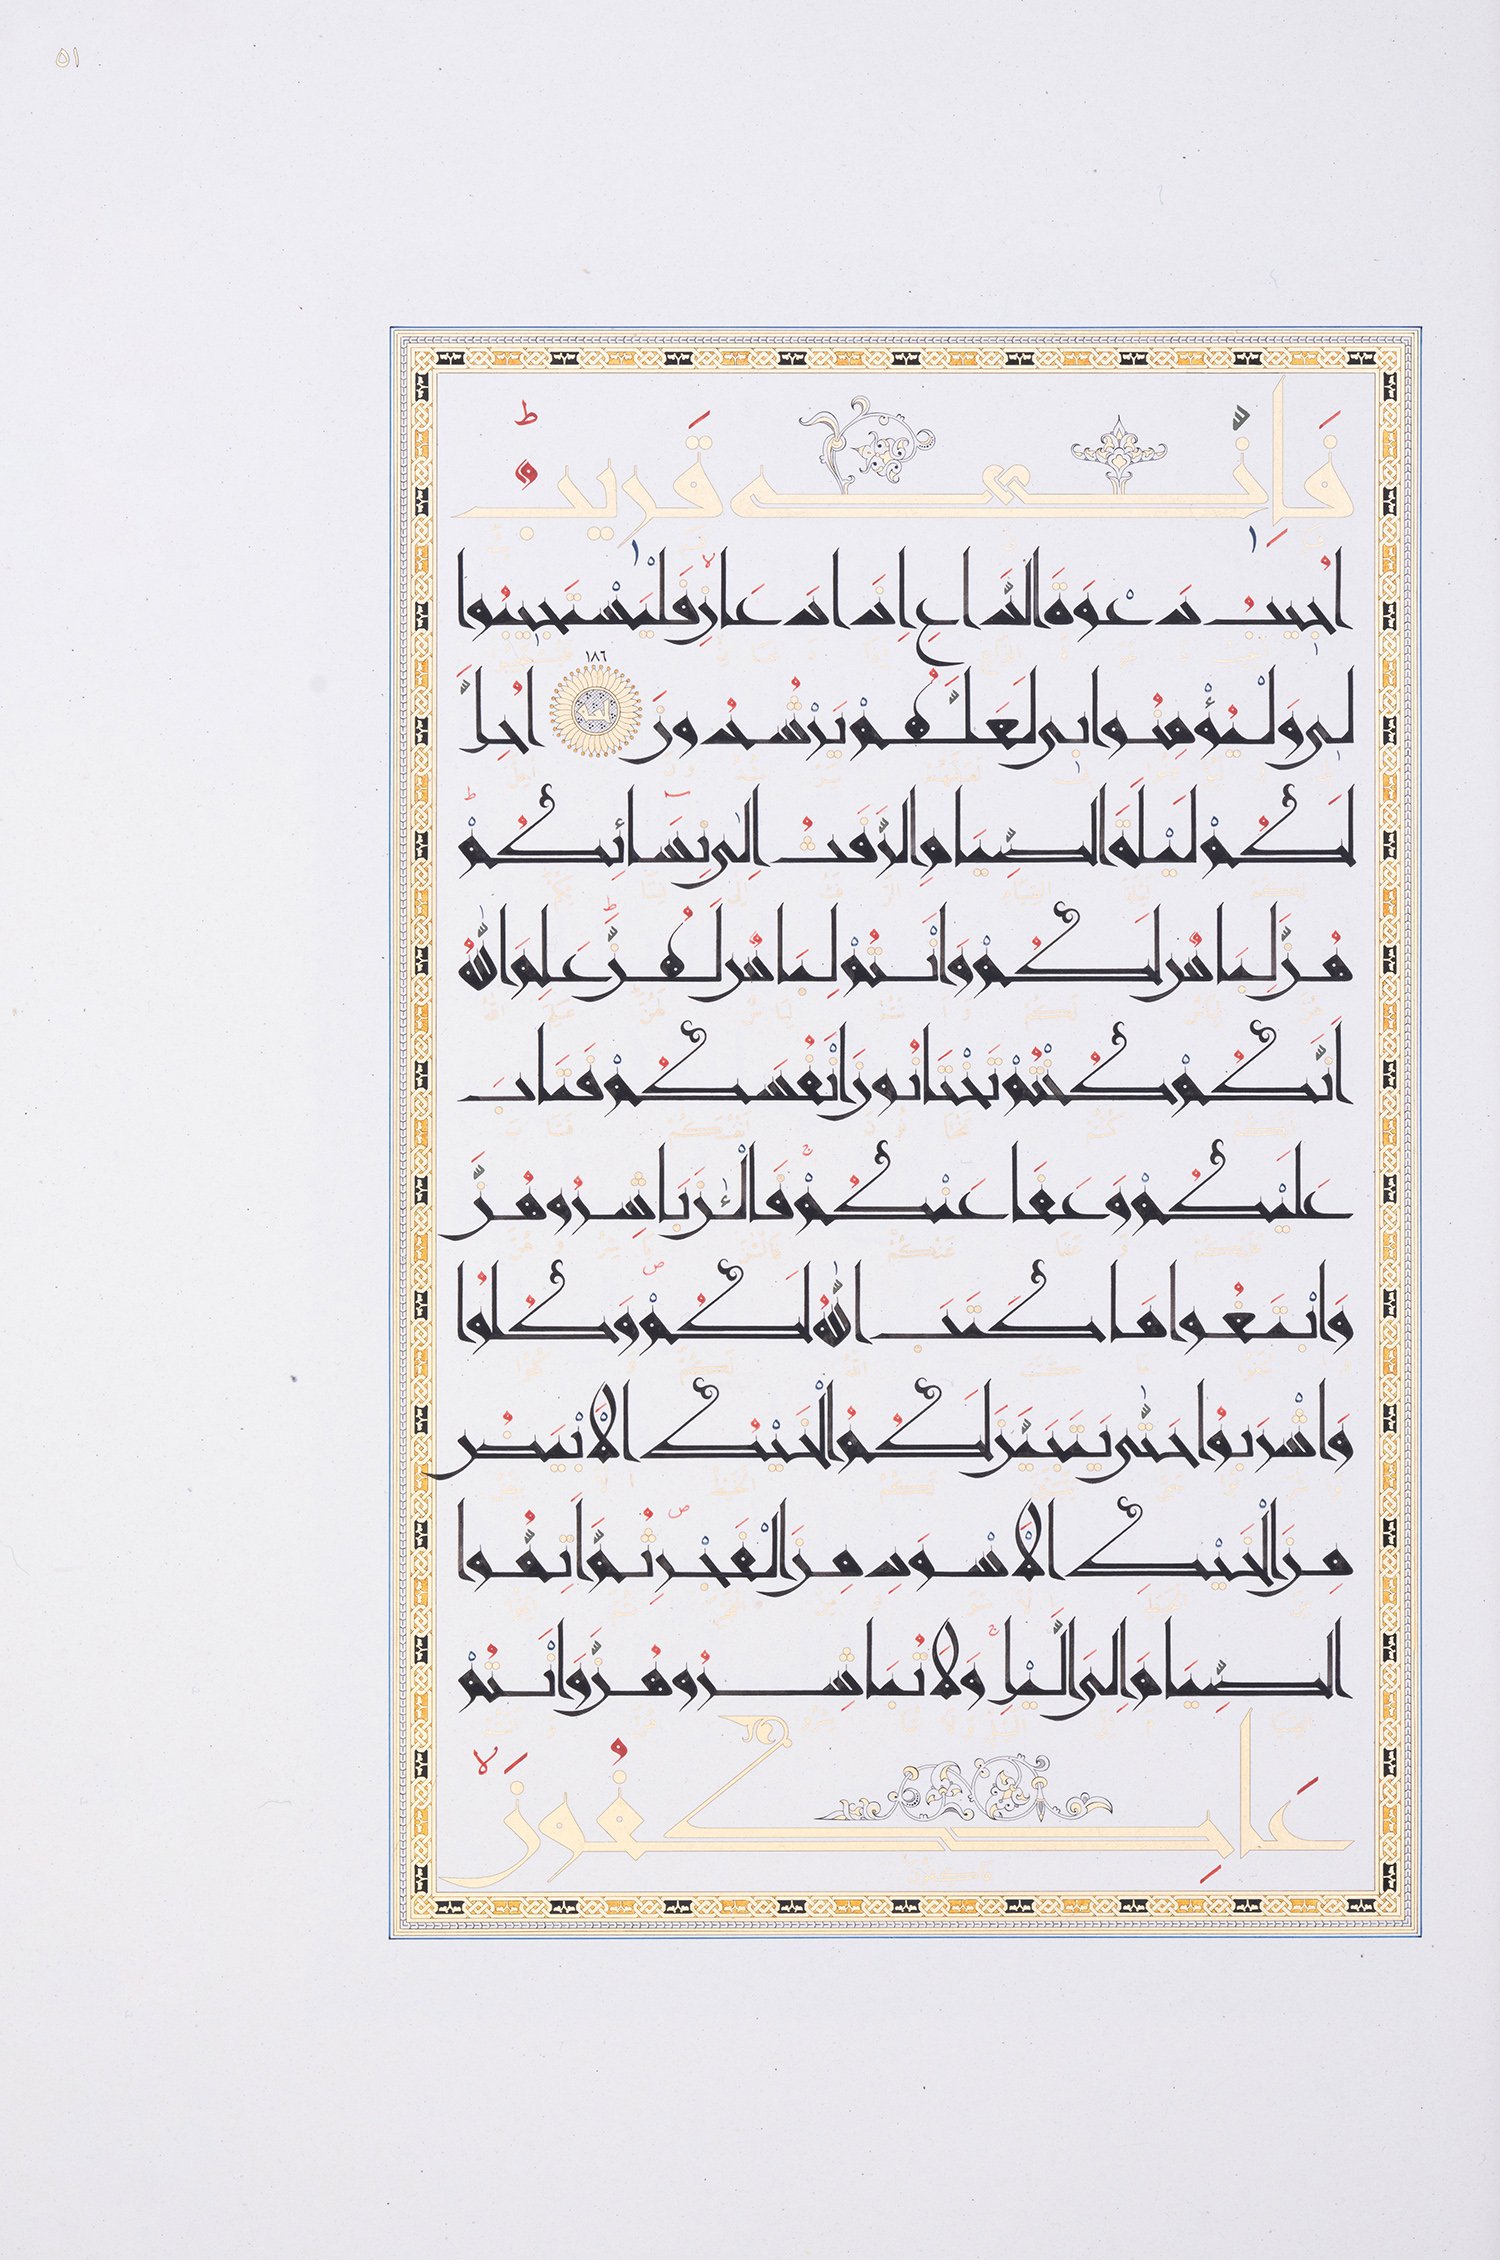 ٥١
فَاِنّٖى قَرٖيبٌ ؕ
اُجٖيبُ دَعْوَةَ الدَّاعِ اِذَا دَعَانِ ۙ فَلْيَسْتَجٖيبُوا
لٖى وَلْيُؤْمِنُوا بٖى لَعَلَّهُمْ يَرْشُدُونَ ١٨٦ اُحِلَّ
لَكُمْ لَيْلَةَ الصِّيَامِ الرَّفَثُ اِلٰى نِسَٓائِكُمْ ؕ
هُنَّ لِبَاسٌ لَكُمْ وَاَنْتُمْ لِبَاسٌ لَهُنَّ ؕ عَلِمَ اللّٰهُ
اَنَّكُمْ كُنْتُمْ تَخْتَانُونَ اَنْفُسَكُمْ فَتَابَ
عَلَيْكُمْ وَعَفَا عَنْكُمْ ۚ فَالْئٰنَ بَاشِرُوهُنَّ
وَابْتَغُوا مَا كَتَبَ اللّٰهُ لَكُمْ ص وَكُلُوا
وَاشْرَبُوا حَتّٰى يَتَبَيَّنَ لَكُمُ الْخَيْطُ الْاَبْيَضُ
مِنَ الْخَيْطِ الْاَسْوَدِ مِنَ الْفَجْرِ ص ثُمَّ اَتِمُّوا
الصِّيَامَ اِلَى الَّيْلِ ۚ وَلَا تُبَاشِرُوهُنَّ وَاَنْتُمْ
عَاكِفُونَ ۙ